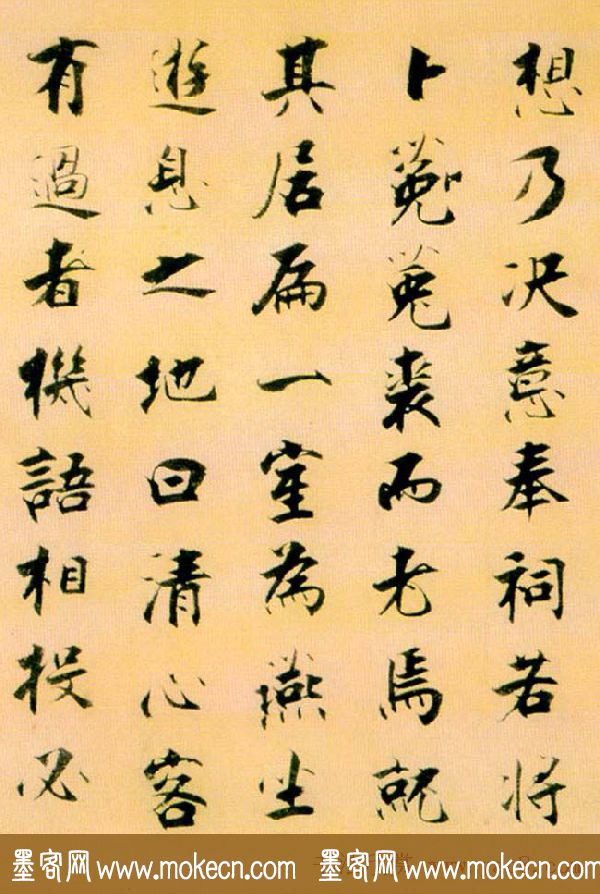 想乃決意奉祠若將
卜菟裘而老焉就
其居扁一室為燕坐
遊息之地曰清心客
有過者機語相投必
墨客网 www.mokecn.com 墨客网 www.mokecn.com